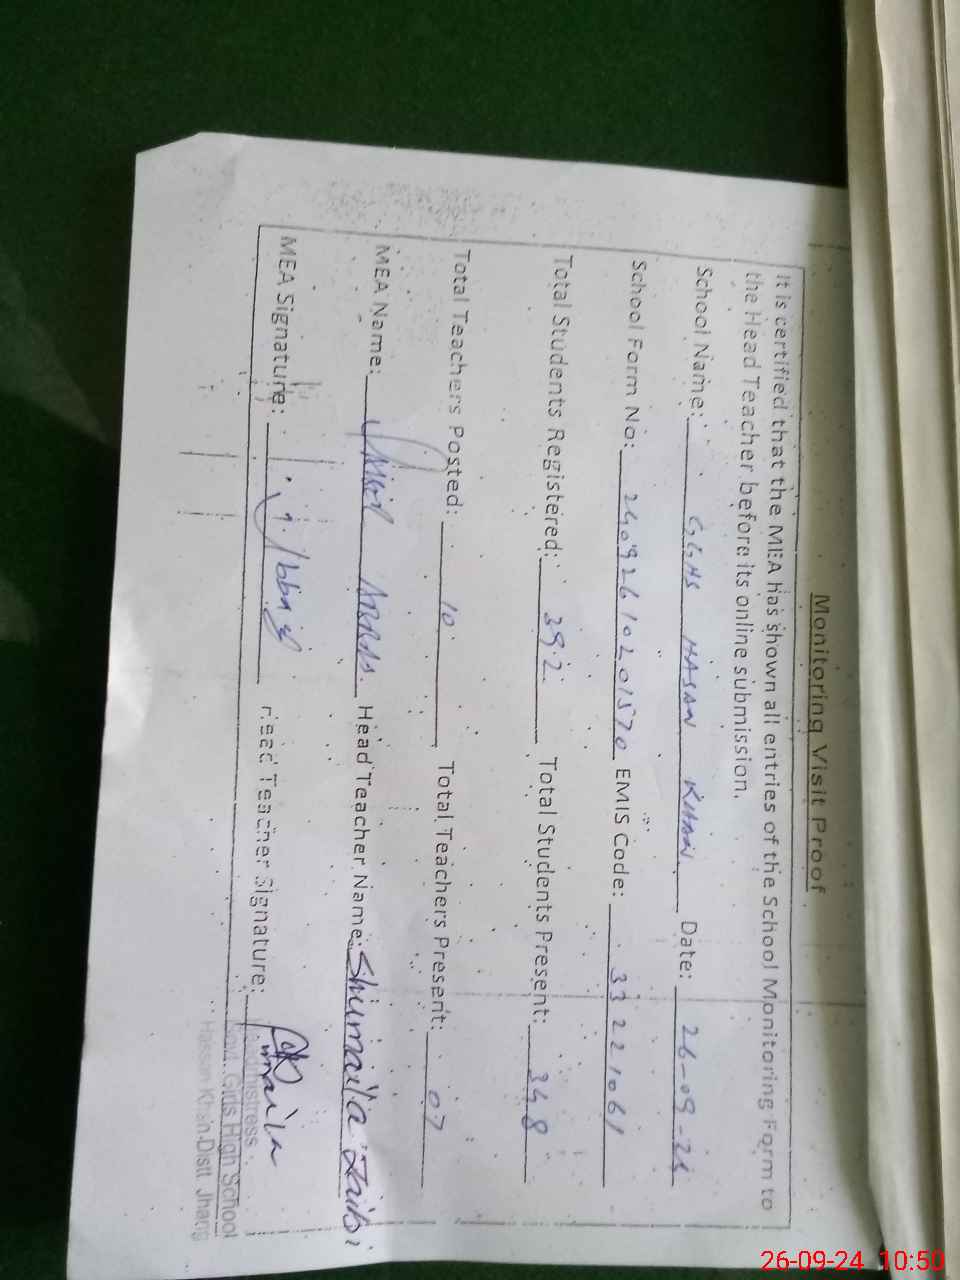 Monitoring Visit Proof
It is certified that the MEA has shown all entries of the School Monitoring Form to
the Head Teacher before its online submission.
School Name: GGHS HASAN KHAN Date: 26-09-24
School Form No: 24092610201570 EMIS Code: 33221061
Total Students Registered: 392 Total Students Present: 348
Total Teachers Posted: 10 Total Teachers Present: 07
MEA Name: Abbas Head Teacher Name: Shumaila
MEA Signature: Head Teacher Signature:
Headmistress
Govt. Girls High School
Hassan Khan Distt. Jhang
26-09-24 10:50